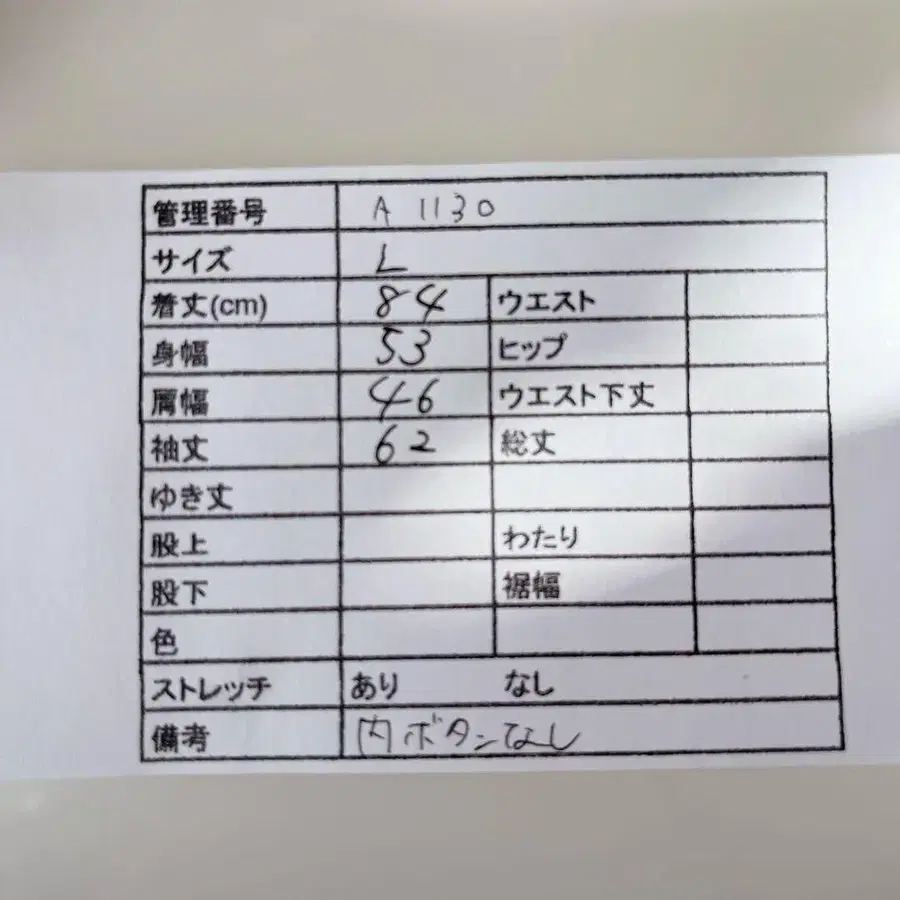 管理番号 A 1130
サイズ L
着丈(cm) 84 ウエスト
身幅 53 ヒップ
肩幅 46 ウエスト下丈
袖丈 62 総丈
ゆき丈
股上 わたり
股下 裾幅
色
ストレッチ あり なし
備考 内ボタンなし